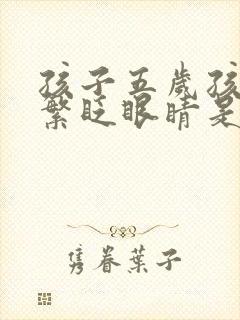 孩子五歲孩
繁眨眼睛是
隽眷葉子